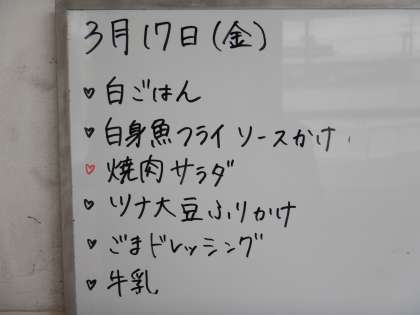 3月17日(金)
♥白ごはん
♥白身魚フライ ソースかけ
♥焼肉サラダ
♥ツナ大豆ふりかけ
♥ごまドレッシング
♥牛乳